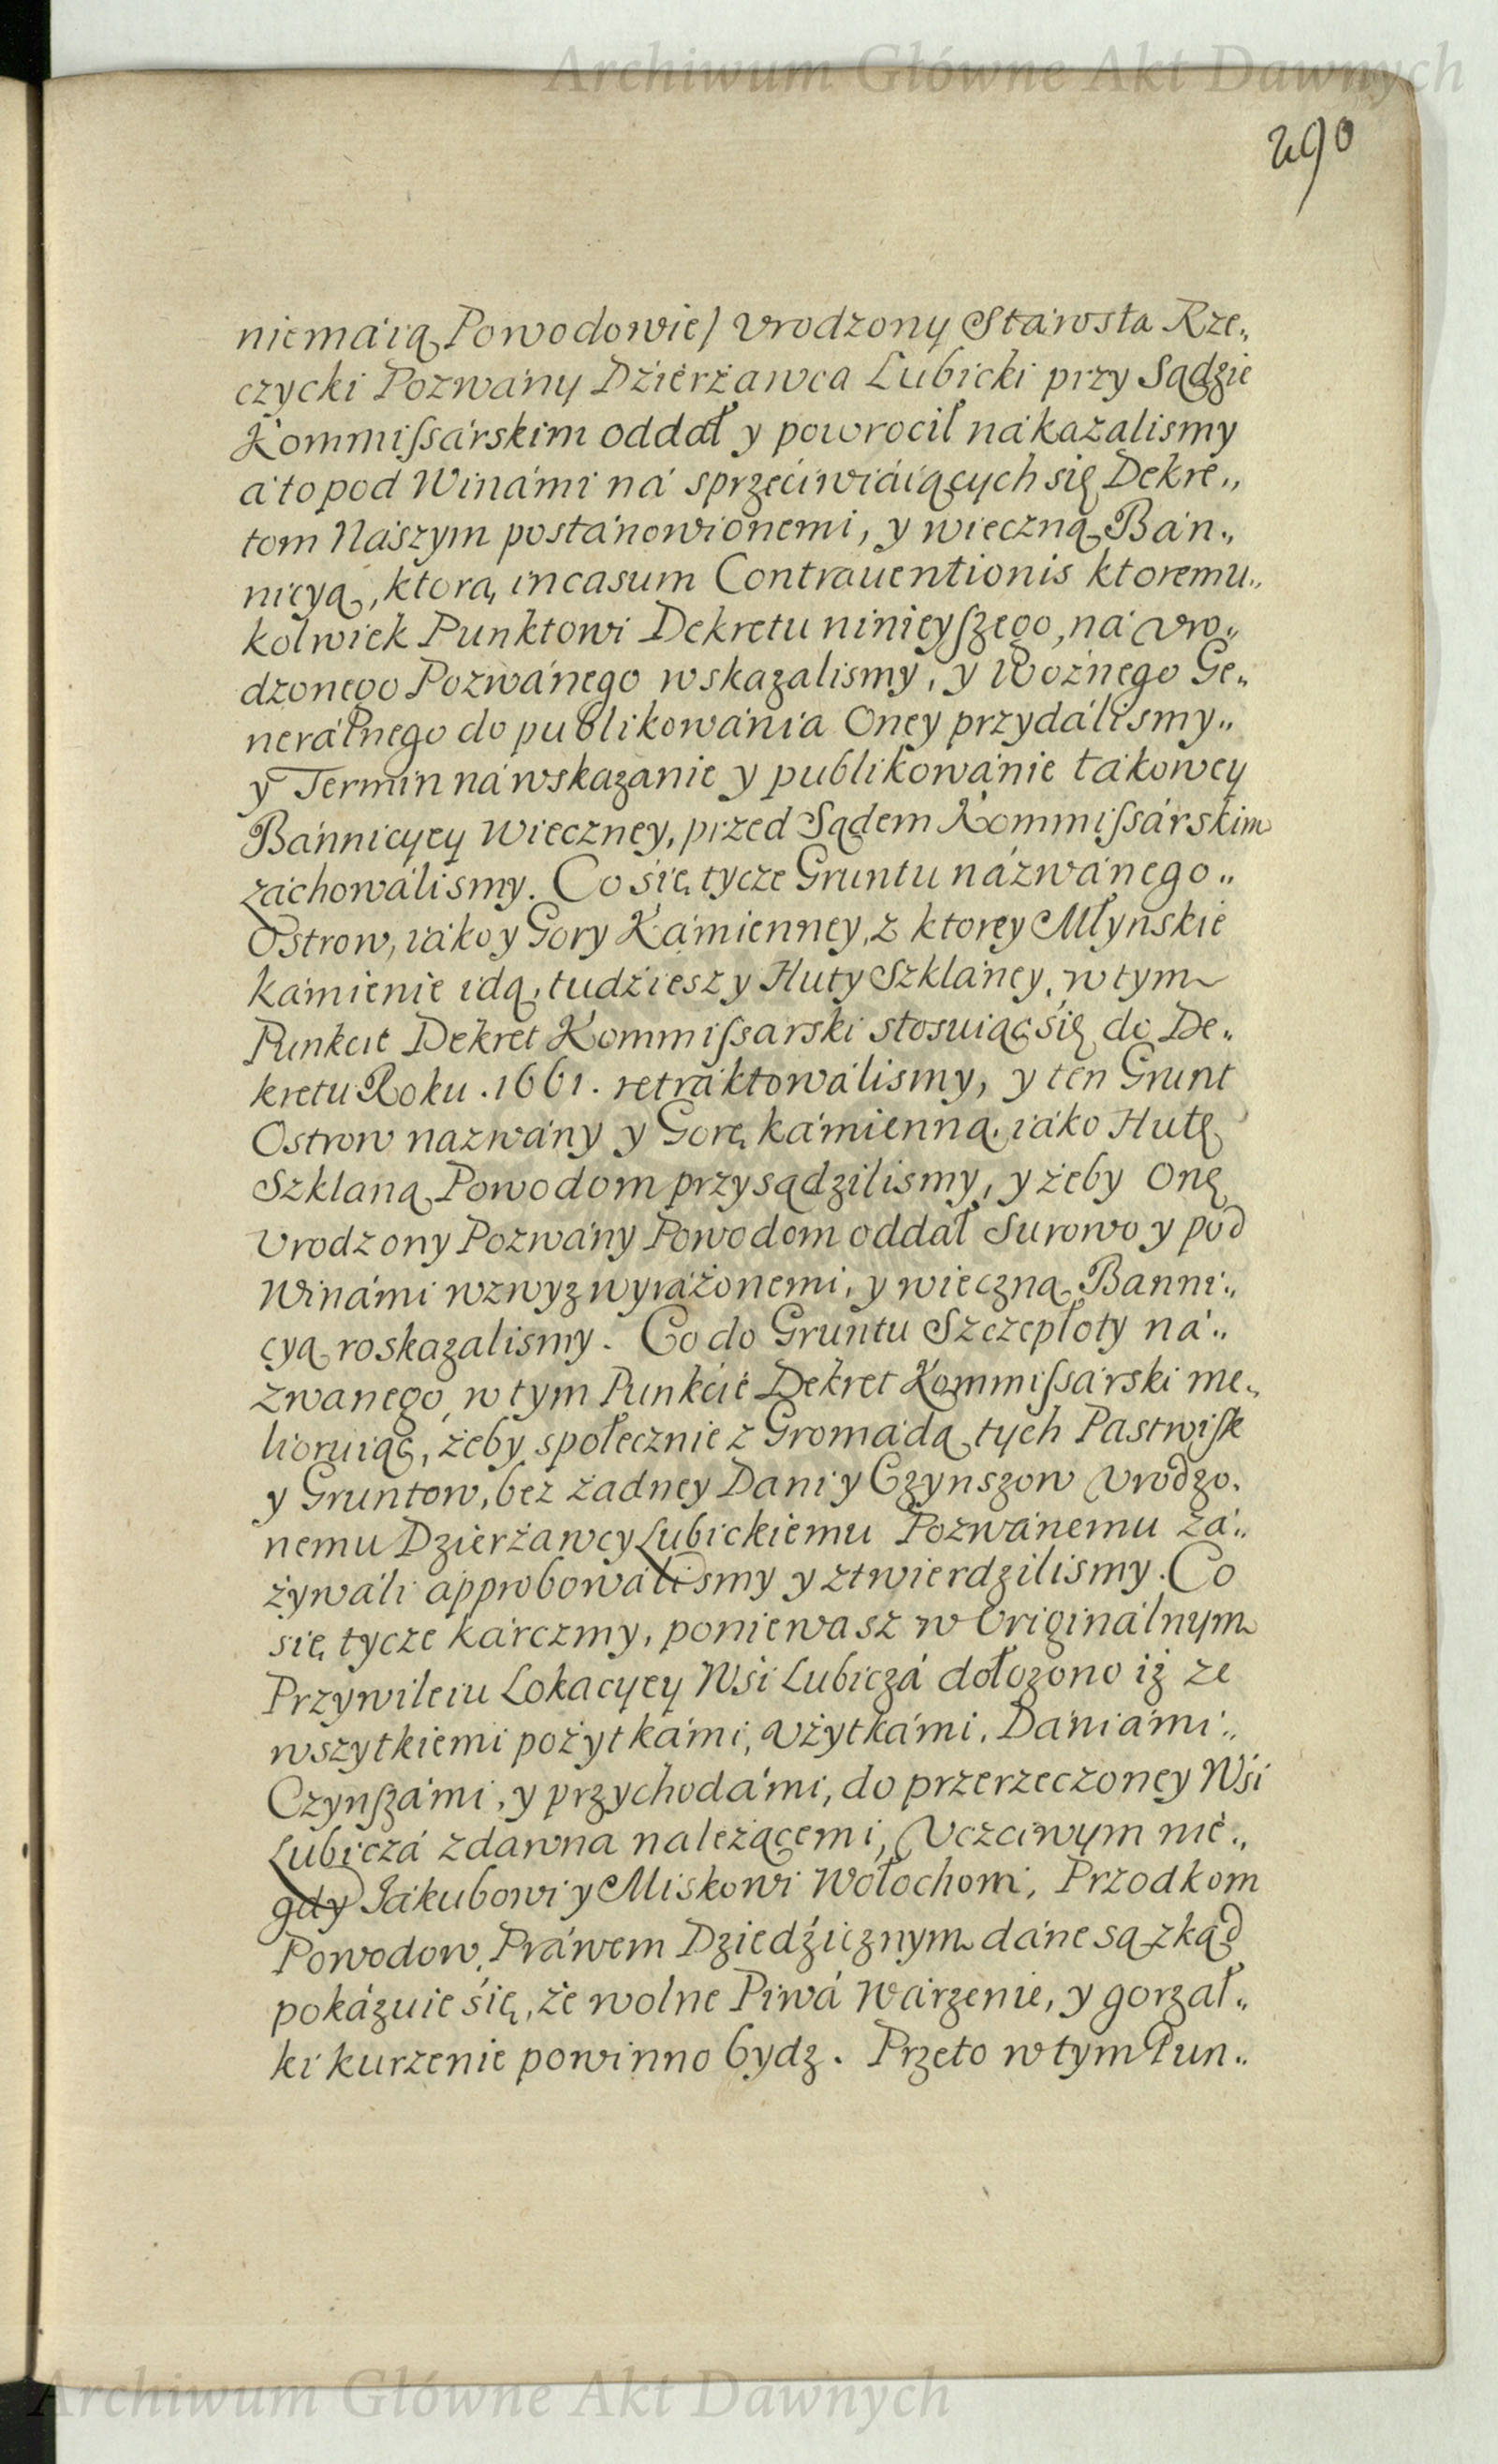 Archiwum Główne Akt Dawnych
290
niemáią Powodowie/ Vrodzony Stárosta Rze„
czycki Pozwány Dźierżawca Lubicki przy Sądzie
Kommiſsárskim oddał y powrocił nákazalismy
á to pod Winámi ná sprzećiwiáiących się Dekre„
tom Nászym postánowionemi, y wieczną Bán„
nicyą, ktorą in casum Contrauentionis ktoremu„
kolwiek Punktowi Dekretu ninieyſzego, ná Vro„
dzonego Pozwánego wskazalismy, y Woźnego Ge„
nerálnego do publikowánia Oney przydálismy„
y Termin ná wskazanie y publikowánie tákowey
Bánnicyey wieczney, przed Sądem Kommiſsárskim
záchowálismy. Co się tycze Gruntu názwánego„
Ostrow, iáko y Gory Kámienney, z ktorey Młynskie
kámienie idą, tudźiesz y Huty Szkláney, w tym
Punkcie Dekret Kommiſsarski stosuiąc się do De„
kretu Roku .1661. retráktowálismy, y ten Grunt
Ostrow nazwány y Gorę kámienną, iáko Hutę
Szklaną Powodom przysądzilismy, y żeby Onę
Vrodzony Pozwány Powodom oddał Surowo y pod
Winámi wzwyz wyrażonemi, y wieczną Banni„
cyą roskazalismy. Co do Gruntu Szczepłoty ná„
zwanego, w tym Punkćie Dekret Kommiſsárski me„
lioruiąc, żeby społecznie z Gromádą tych Pastwiſk
y Gruntow, bez żadney Dani y Czynszow Vrodzo„
nemu Dzierżawcy Lubickiemu Pozwánemu zá„
żywáli approbowálismy y ztwierdzilismy. Co
się tycze kárczmy, poniewasz w Originálnym
Przywileiu Lokacyey Wśi Lubiczá dołozono iż ze
wszytkiemi pożytkámi, Vżytkámi, Dániámi„
Czynſzámi, y przychodámi, do przerzeczoney Wśi
Lubiczá zdawna należącemi, Vczciwym nie„
gdy Jákubowi y Miskowi Wołochom, Przodkom
Powodow, Práwem Dziedźicznym dáne są zkąd
pokázuie się, że wolne Piwá Wárzenie, y gorzał„
ki kurzenie powinno bydz. Przeto w tym Pun„
Archiwum Główne Akt Dawnych